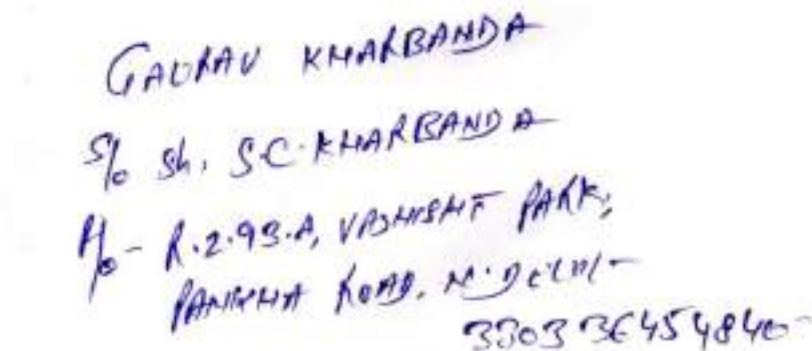 GAURAV KHARBANDA
S/o Sh. S.C. KHARBANDA
R/o - R.2.93.A, VASHISHT PARK,
PANKHA ROAD, N. DELHI-
33033645484